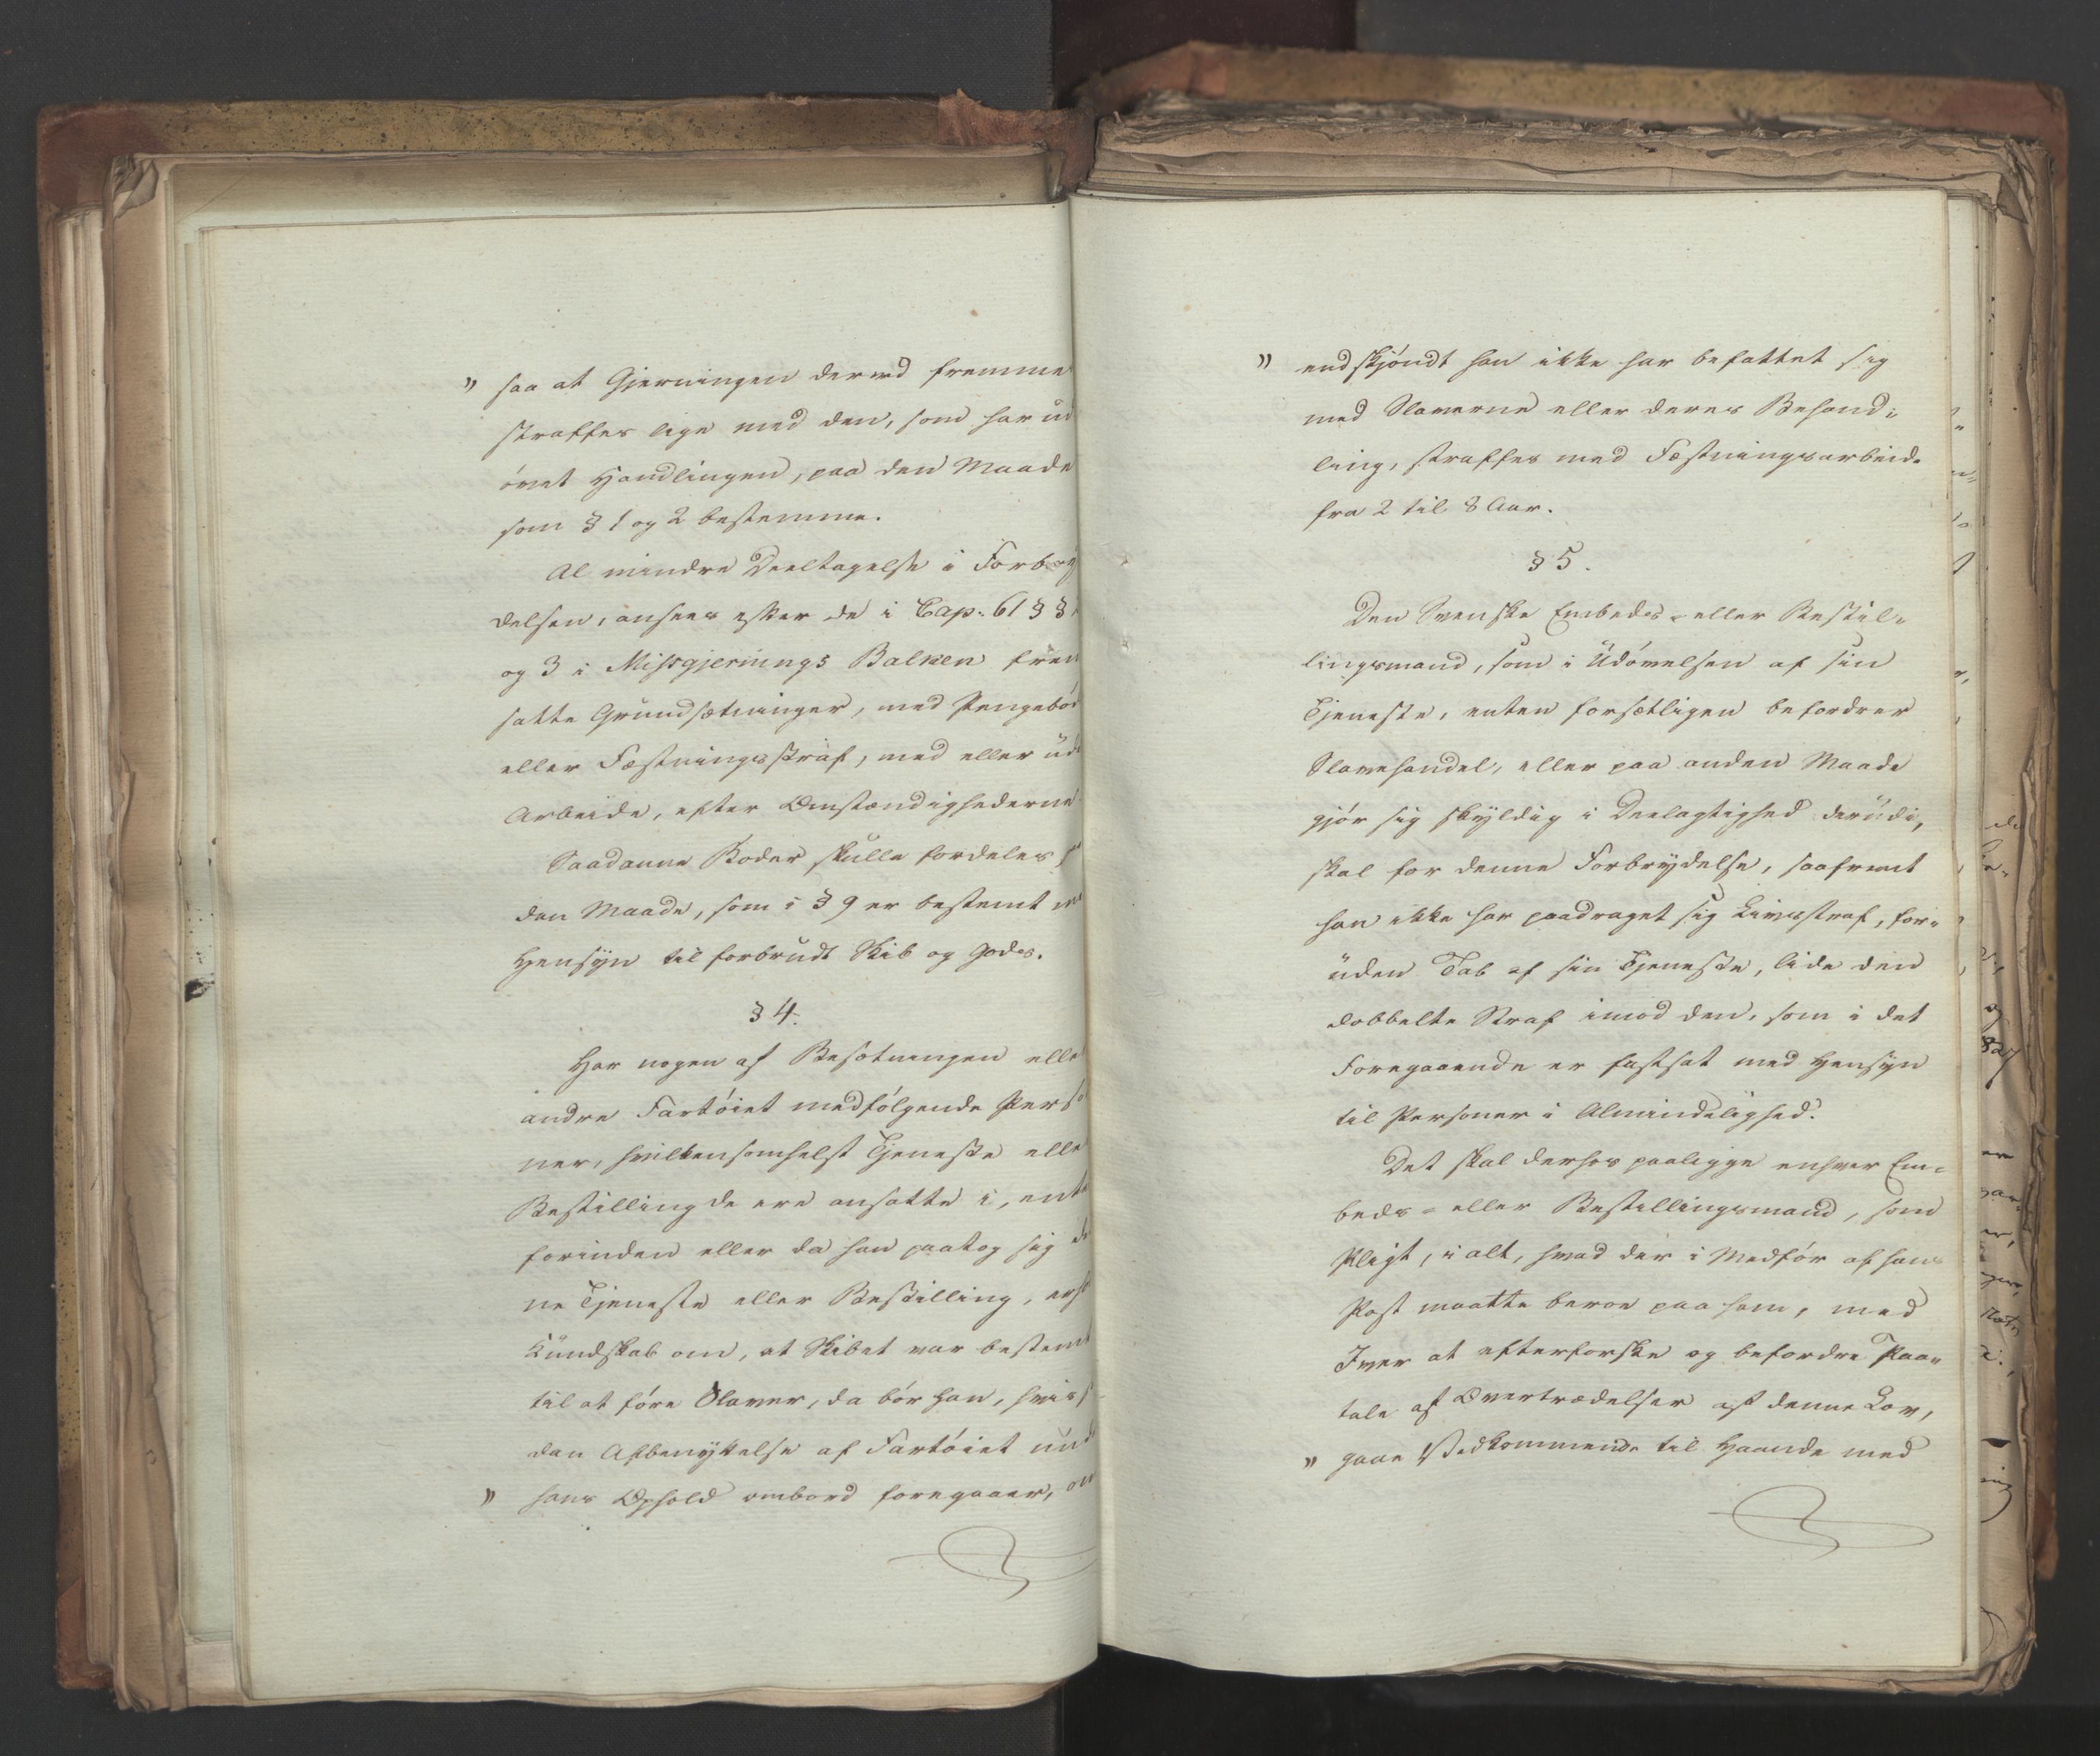 " saa at Gjerningen derved fremme
straffes lige med den, som har ud
øvet Handlingen, paa den Maade
som § 1 og 2 bestemme.
Al mindre Deeltagelse i Forbry
delsen, ansees efter de i Cap. 61 § §
og 3 i Missgjernings Balken frem
satte Grundsætninger, med Pengebød
eller Fæstningsstraf, med eller ud
Arbeide, efter Omstændighederne.
Saadanne Bøder skulle fordeles
den Maade, som i § 9 er bestemt
Hensyn til forbrudt Skib og Gods.
§ 4.
Har nogen af Besætningen elle
andre Fartøiet medfølgende Perso
ner, hvilkensomhelst Tjeneste elle
Bestilling de ere ansatte i, ente
forinden eller da han paatog sig de
ne Tjeneste eller Bestilling, erho
Kundskab om, at Skibet var bestemt
til at føre Slaver, da bør han, hvis s
dan Afbenyttelse af Fartøiet und
" hans Ophold ombord foregaaer, om
" endskjøndt han ikke har befattet sig
med Slaverne eller deres Behand-
ling, straffes med Fæstningsarbeide
fra 2 til 8 Aar.
§ 5.
Den Svenske Embeds- eller Bestil-
lingsmand, som i Udøvelsen af sin
Tjeneste, enten forsætligen befordrer
Slavehandel, eller paa anden Maade
gjør sig skyldig i Deelagtighed derudi,
skal for denne Forbrydelse, saafremt
han ikke har paadraget sig Livsstraf, for-
uden Tab af sin Tjeneste, lide den
dobbelte Straf imod den, som i det
Foregaaende er fastsat med Hensyn
til Personer i Almindelighed.
Det skal derhos paaligge enhver Em-
beds- eller Bestillingsmand, som
Pligt, i alt, hvad der i Medfør af hans
Post maatte beroe paa ham, med
Iver at efterforske og befordre Paa-
tale af Overtrædelser af denne Lov,
" gaae Vedkommende til Haande med